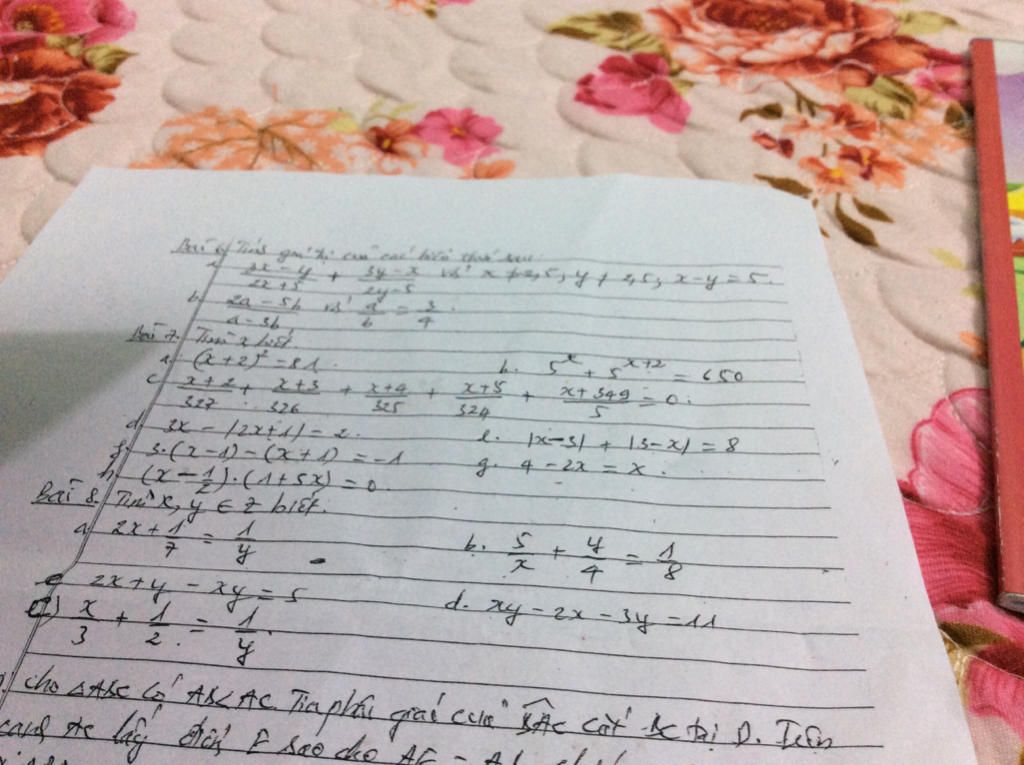 Bài 6. Tính giá trị của các biểu thức sau:
a. \frac{3x-y}{2x+5} + \frac{3y-x}{2y-5} với x ≠ -2,5; y ≠ 2,5; x-y=5.
b. \frac{2a-5b}{a-3b} với \frac{a}{b} = \frac{3}{4}.
Bài 7. Tìm x biết.
a. (x+2)² = 81. b. 5^x + 5^{x+2} = 650
c. \frac{x+2}{327} + \frac{x+3}{326} + \frac{x+4}{325} + \frac{x+5}{324} + \frac{x+349}{5} = 0.
d. 3x - |2x+1| = 2. e. |x-3| + |3-x| = 8
f. 3.(x-1) - (x+1) = -1 g. 4 - 2x = x.
h. (x - \frac{1}{2}).(1+5x) = 0
Bài 8. Tìm x, y ∈ Z biết.
a. 2x + \frac{1}{7} = \frac{1}{y} b. \frac{5}{x} + \frac{y}{4} = \frac{1}{8}
c 2x + y - xy = 5 d. xy - 2x - 3y = 11
) \frac{x}{3} + \frac{1}{2} = \frac{1}{y}.
cho △ABC Có AB < AC. Tia phân giác của \widehat{BAC} cắt BC tại D. Trên
cạnh AC lấy điểm E sao cho AE = AB